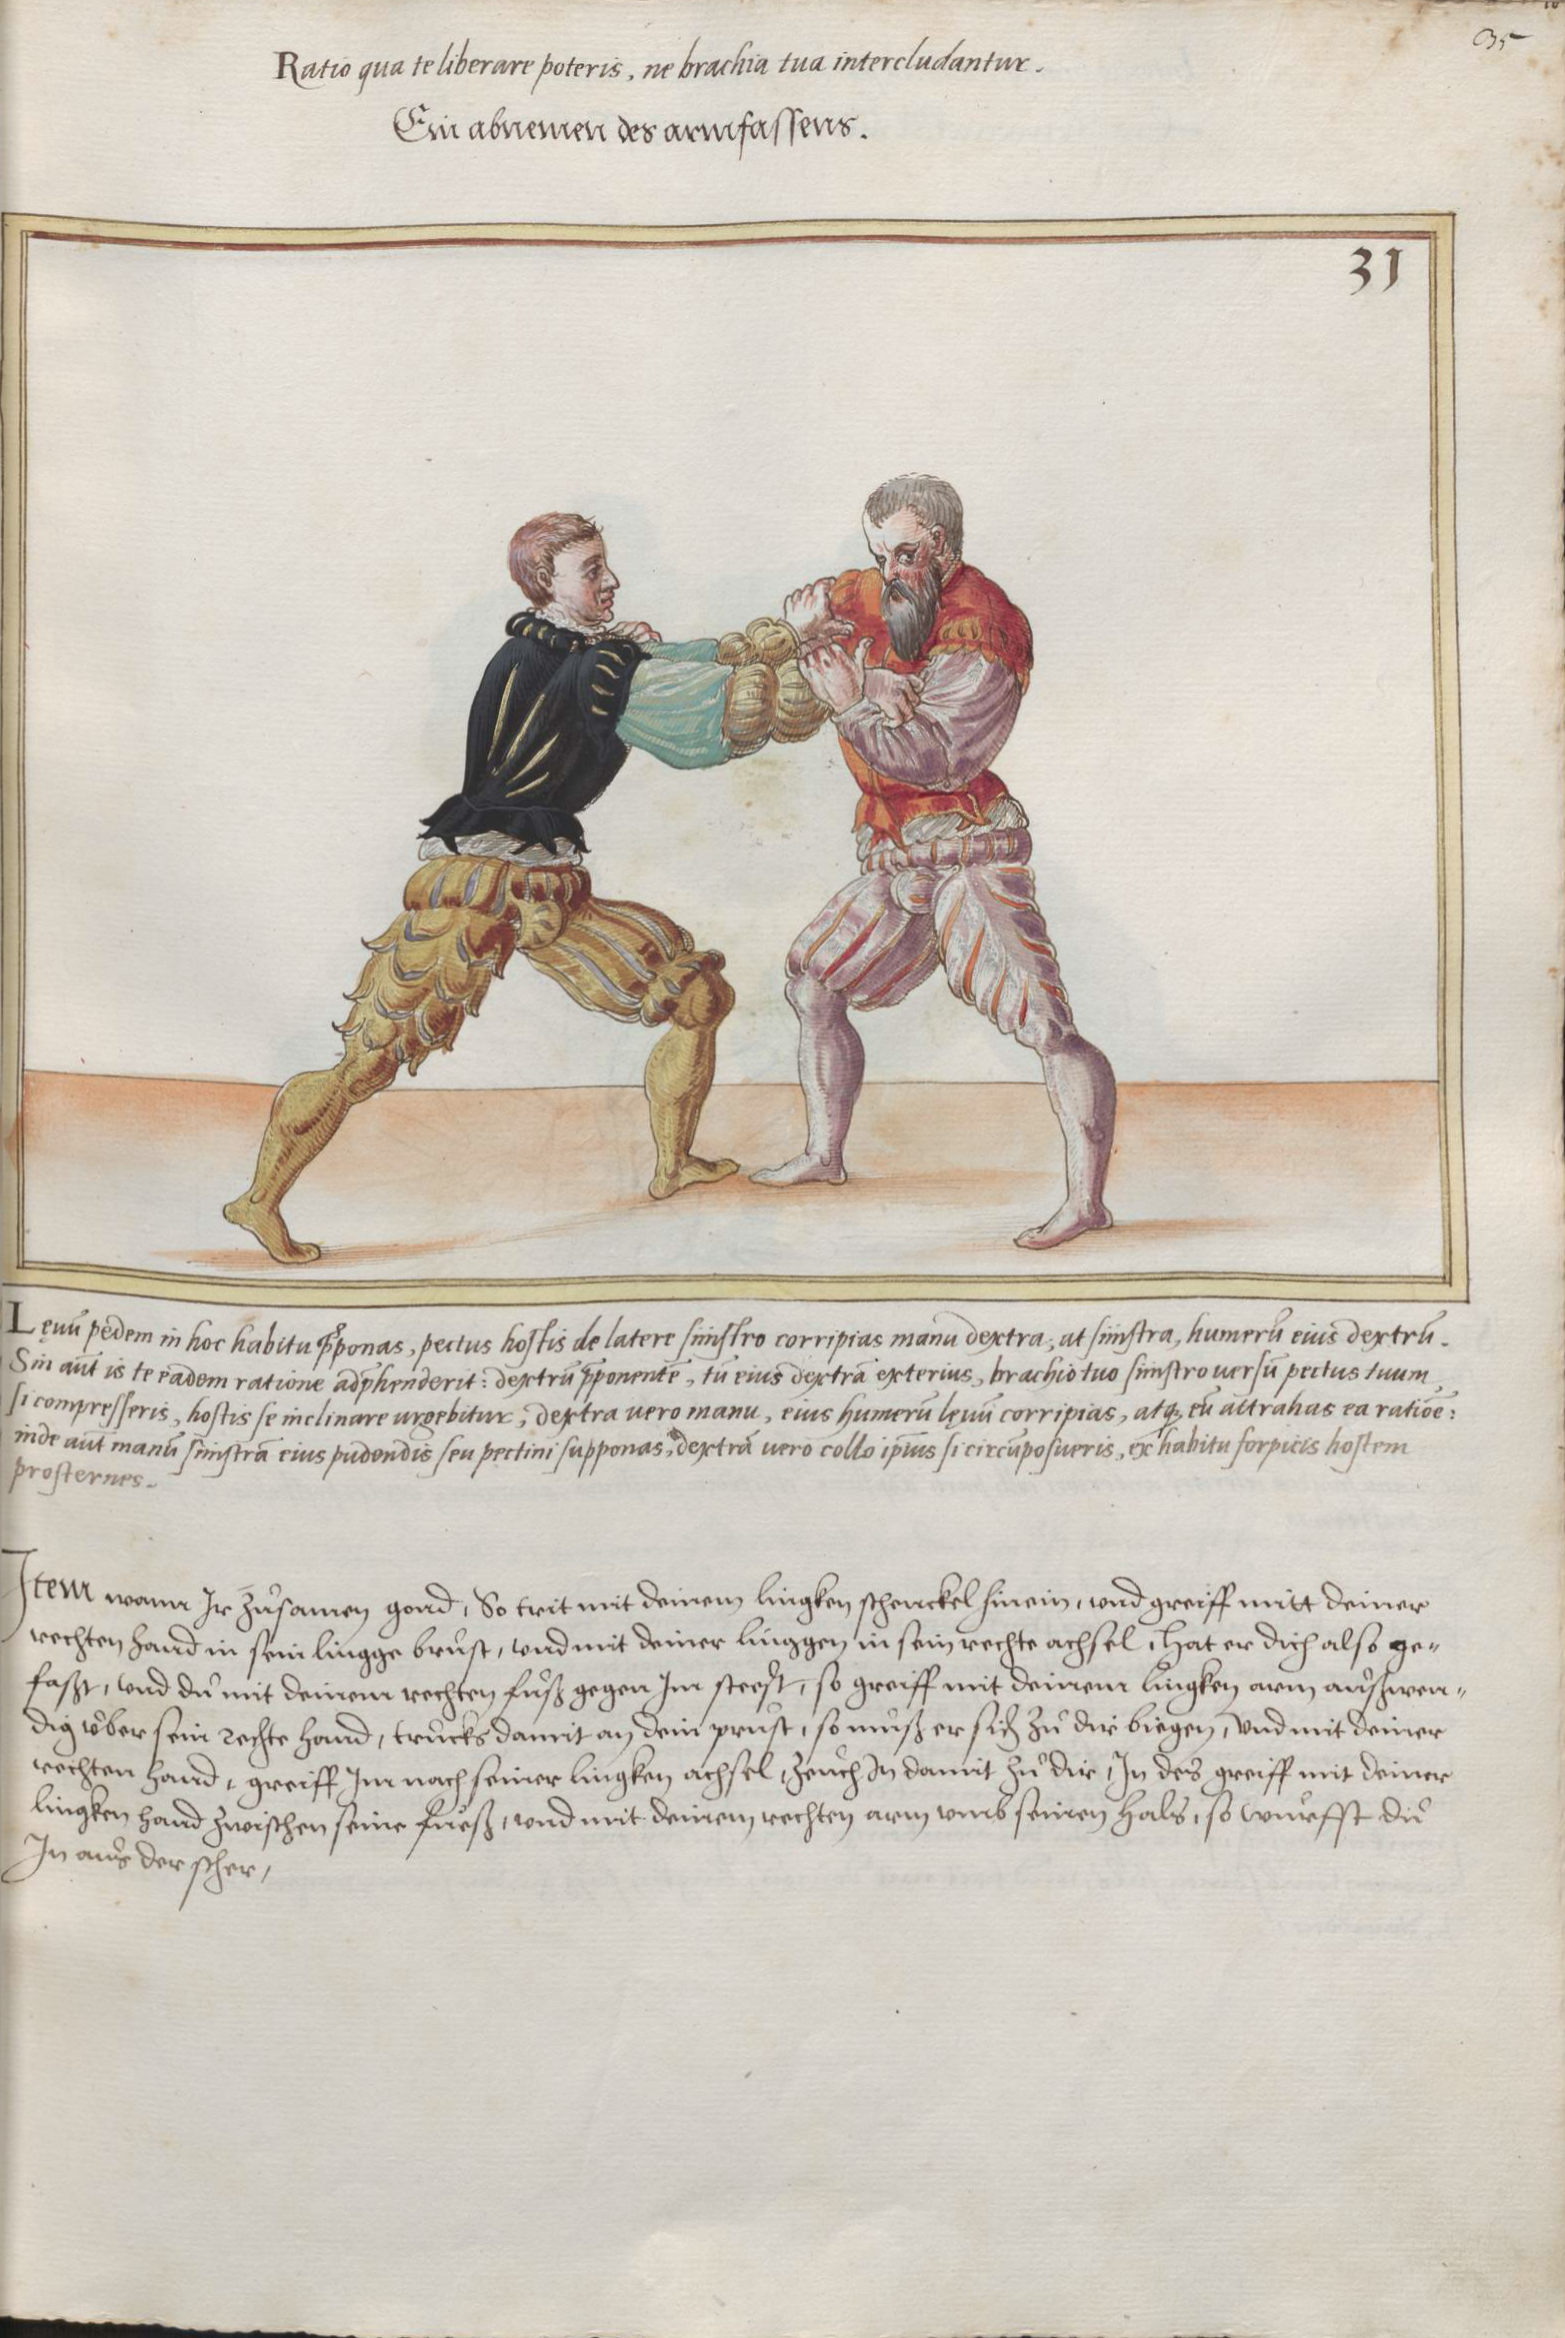 35
Ratio qua te liberare poteris, ne brachia tua intercludantur.
Ein abnemen des armfassens.
31
Lęuū pedem in hoc habitu p̄ponas, pectus hostis de latere sinistro corripias manu dextra, at sinistra, humerū eius dextrū.
Sin aūt is te eadem ratione adp̄henderit: dextrū p̄ponentē, tū eius dextrā exterius, brachio tuo sinistro uersū pectus tuum
si compresseris, hostis se inclinare urgebitur, dextra vero manu, eius humerū lęuū corripias, atq, eū attrahas ea ratiōe:
inde aūt manū sinistrā eius pudendis seu pectini supponas, dextrā uero collo ip̄ius si circūposueris, ex habitu forpicis hostem
prosternes.
Item wann Ir zůsamen gond, So trit mit deinem lingken schenckel hinein, und greiff mitt deiner
rechten hand in sein lingge brůst, und mit deiner linggen in sein rechte achsel, Hat er dich also ge„
faßt, und dů mit deinem rechten fůß gegen Im steest, so greiff mit deinem lingken arm außwen„
dig über sein rechte hand, trucks damit an dein prust, so muß er sich zů dir biegen, Und mit deiner
rechten hand, greiff Im nach seiner lingken achsel, zeuch In damit zů dir, In des greiff mit deiner
lingken hand zwischen seine fueß, und mit deinem rechten arm umb seinen hals, so wurffst dů
In aus der scher,